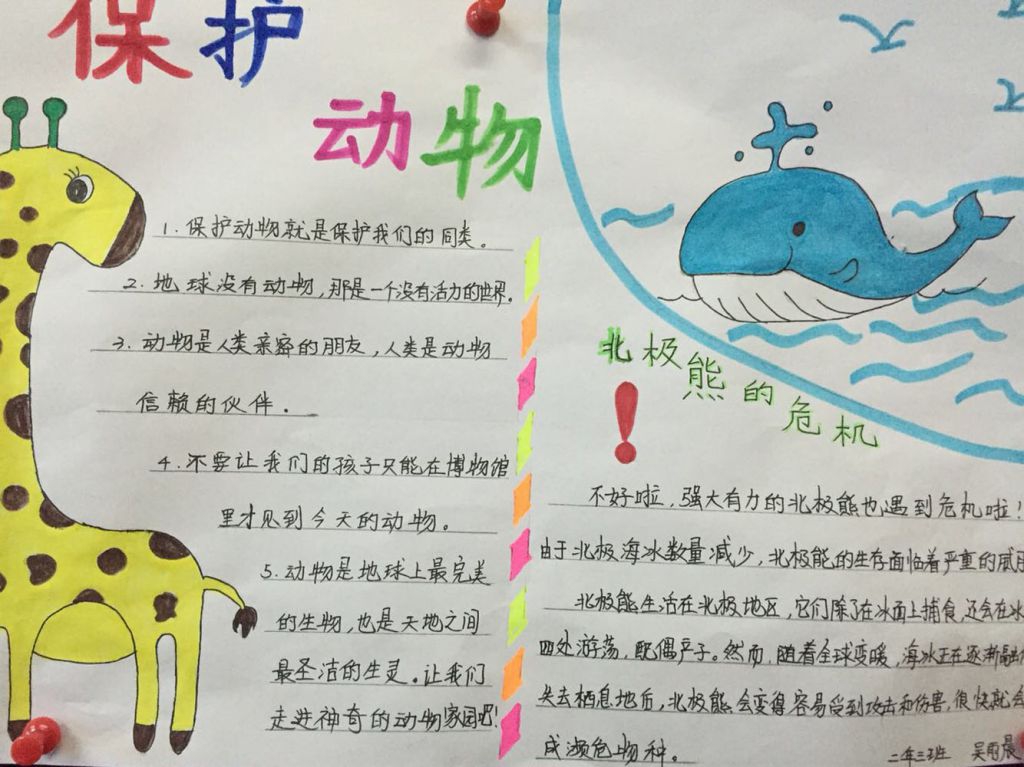 保护
动物
1. 保护动物就是保护我们的同类。
2. 地球没有动物，那是一个没有活力的世界。
3. 动物是人类亲密的朋友，人类是动物
信赖的伙伴．
4. 不要让我们的孩子只能在博物馆
里才见到今天的动物。
5. 动物是地球上最完美
的生物，也是天地之间
最圣洁的生灵。让我们
走进神奇的动物家园吧！
北极熊的危机
！
不好啦，强大有力的北极熊也遇到危机啦！
由于北极海冰数量减少，北极能的生存面临着严重的威
北极能生活在北极地区，它们除了在冰面上捕食，还会在水
四处游荡，配偶产子。然而，随着全球变暖，海冰正在逐渐融
失去栖息地后，北极熊会变得容易受到攻击和伤害，很快就会
成濒危物种。
二年三班 吴雨晨